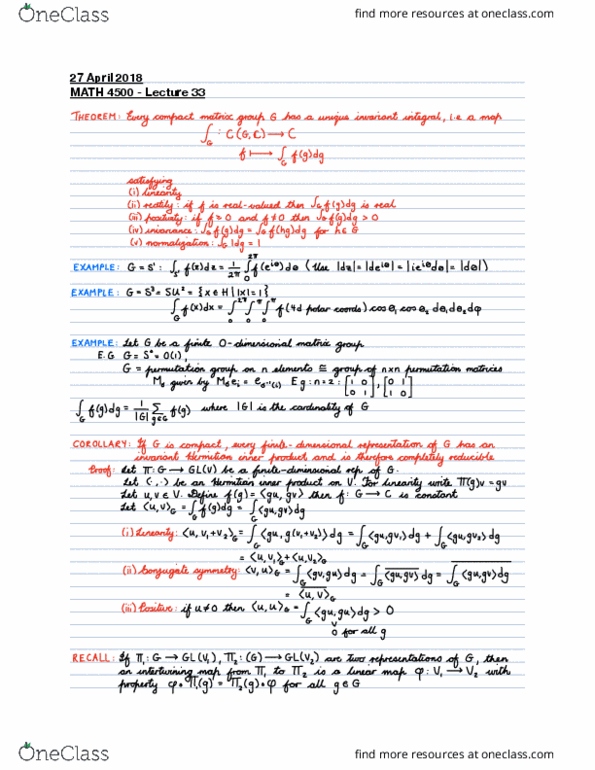 OneClass
find more resources at oneclass.com
27 April 2018
MATH 4500 - Lecture 33
THEOREM: Every compact matrix group G has a unique invariant integral, i.e a map
∫_G : C(G, C) → C
f ↦ ∫_G f(g)dg
satisfying
(i) linearity
(ii) reality: if f is real-valued then ∫_G f(g)dg is real
(iii) positivity: if f ≥ 0 and f ≠ 0 then ∫_G f(g)dg > 0
(iv) invariance: ∫_G f(g)dg = ∫_G f(hg)dg for h∈G
(v) normalization: ∫_G 1dg = 1
EXAMPLE: G = S¹: ∫_{S¹} f(z)dz = 1/2π ∫_0^{2π} f(e^{iθ})dθ (Use |dz| = |de^{iθ}| = |ie^{iθ}dθ| = |dθ|)
EXAMPLE: G = S³ = SU² = {x∈H | |x| = 1}
∫_G f(x)dx = ∫_0^{2π} ∫_0^π ∫_0^π f(4d polar coords) cos θ₁ cos θ₂ dθ₁ dθ₂ dφ
EXAMPLE: Let G be a finite 0-dimensional matrix group
E.G G = S⁰ = O(1),
G = permutation group on n elements ≅ group of n×n permutation matrices
M_σ given by M_σ e_i = e_{σ⁻¹(i)} E.g: n = 2: [1 0; 0 1], [0 1; 1 0]
∫_G f(g)dg = 1/|G| Σ_{g∈G} f(g) where |G| is the cardinality of G
COROLLARY: If G is compact, every finite-dimensional representation of G has an
invariant Hermitian inner product and is therefore completely reducible
Proof: Let Π: G → GL(V) be a finite-dimensional rep of G.
Let ⟨·,·⟩ be an Hermitian inner product on V. For linearity write Π(g)v = gv
Let u,v ∈ V. Define f(g) = ⟨gu, gv⟩ then f: G → C is constant
Let ⟨u,v⟩_G = ∫_G f(g)dg = ∫_G ⟨gu, gv⟩dg
(i) Linearity: ⟨u, v₁+v₂⟩_G = ∫_G ⟨gu, g(v₁+v₂)⟩dg = ∫_G ⟨gu, gv₁⟩dg + ∫_G ⟨gu, gv₂⟩dg
= ⟨u, v₁⟩_G + ⟨u, v₂⟩_G
(ii) Conjugate symmetry: ⟨v,u⟩_G = ∫_G ⟨gv, gu⟩dg = ∫_G \overline{⟨gu, gv⟩} dg = \overline{∫_G ⟨gu, gv⟩dg}
= \overline{⟨u, v⟩_G}
(iii) Positive: if u ≠ 0 then ⟨u, u⟩_G = ∫_G ⟨gu, gu⟩dg > 0
∨
0 for all g
RECALL: If Π₁: G → GL(V₁), Π₂: (G) → GL(V₂) are two representations of G, then
an intertwining map from Π₁ to Π₂ is a linear map φ: V₁ → V₂ with
property φ∘Π₁(g) = Π₂(g)∘φ for all g∈G
OneClass
find more resources at oneclass.com